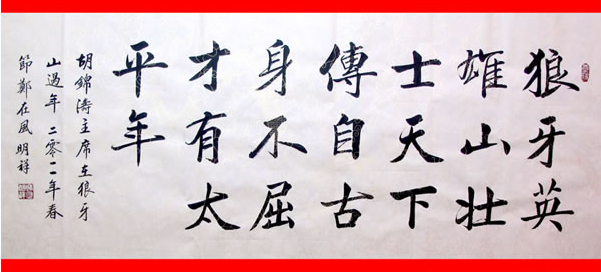 狼牙英
雄山壮
士天下
傳自古
身不屈
才有太
平年
胡錦涛主席在狼牙
山過年 二零一一年春
節鄭在風 明祥